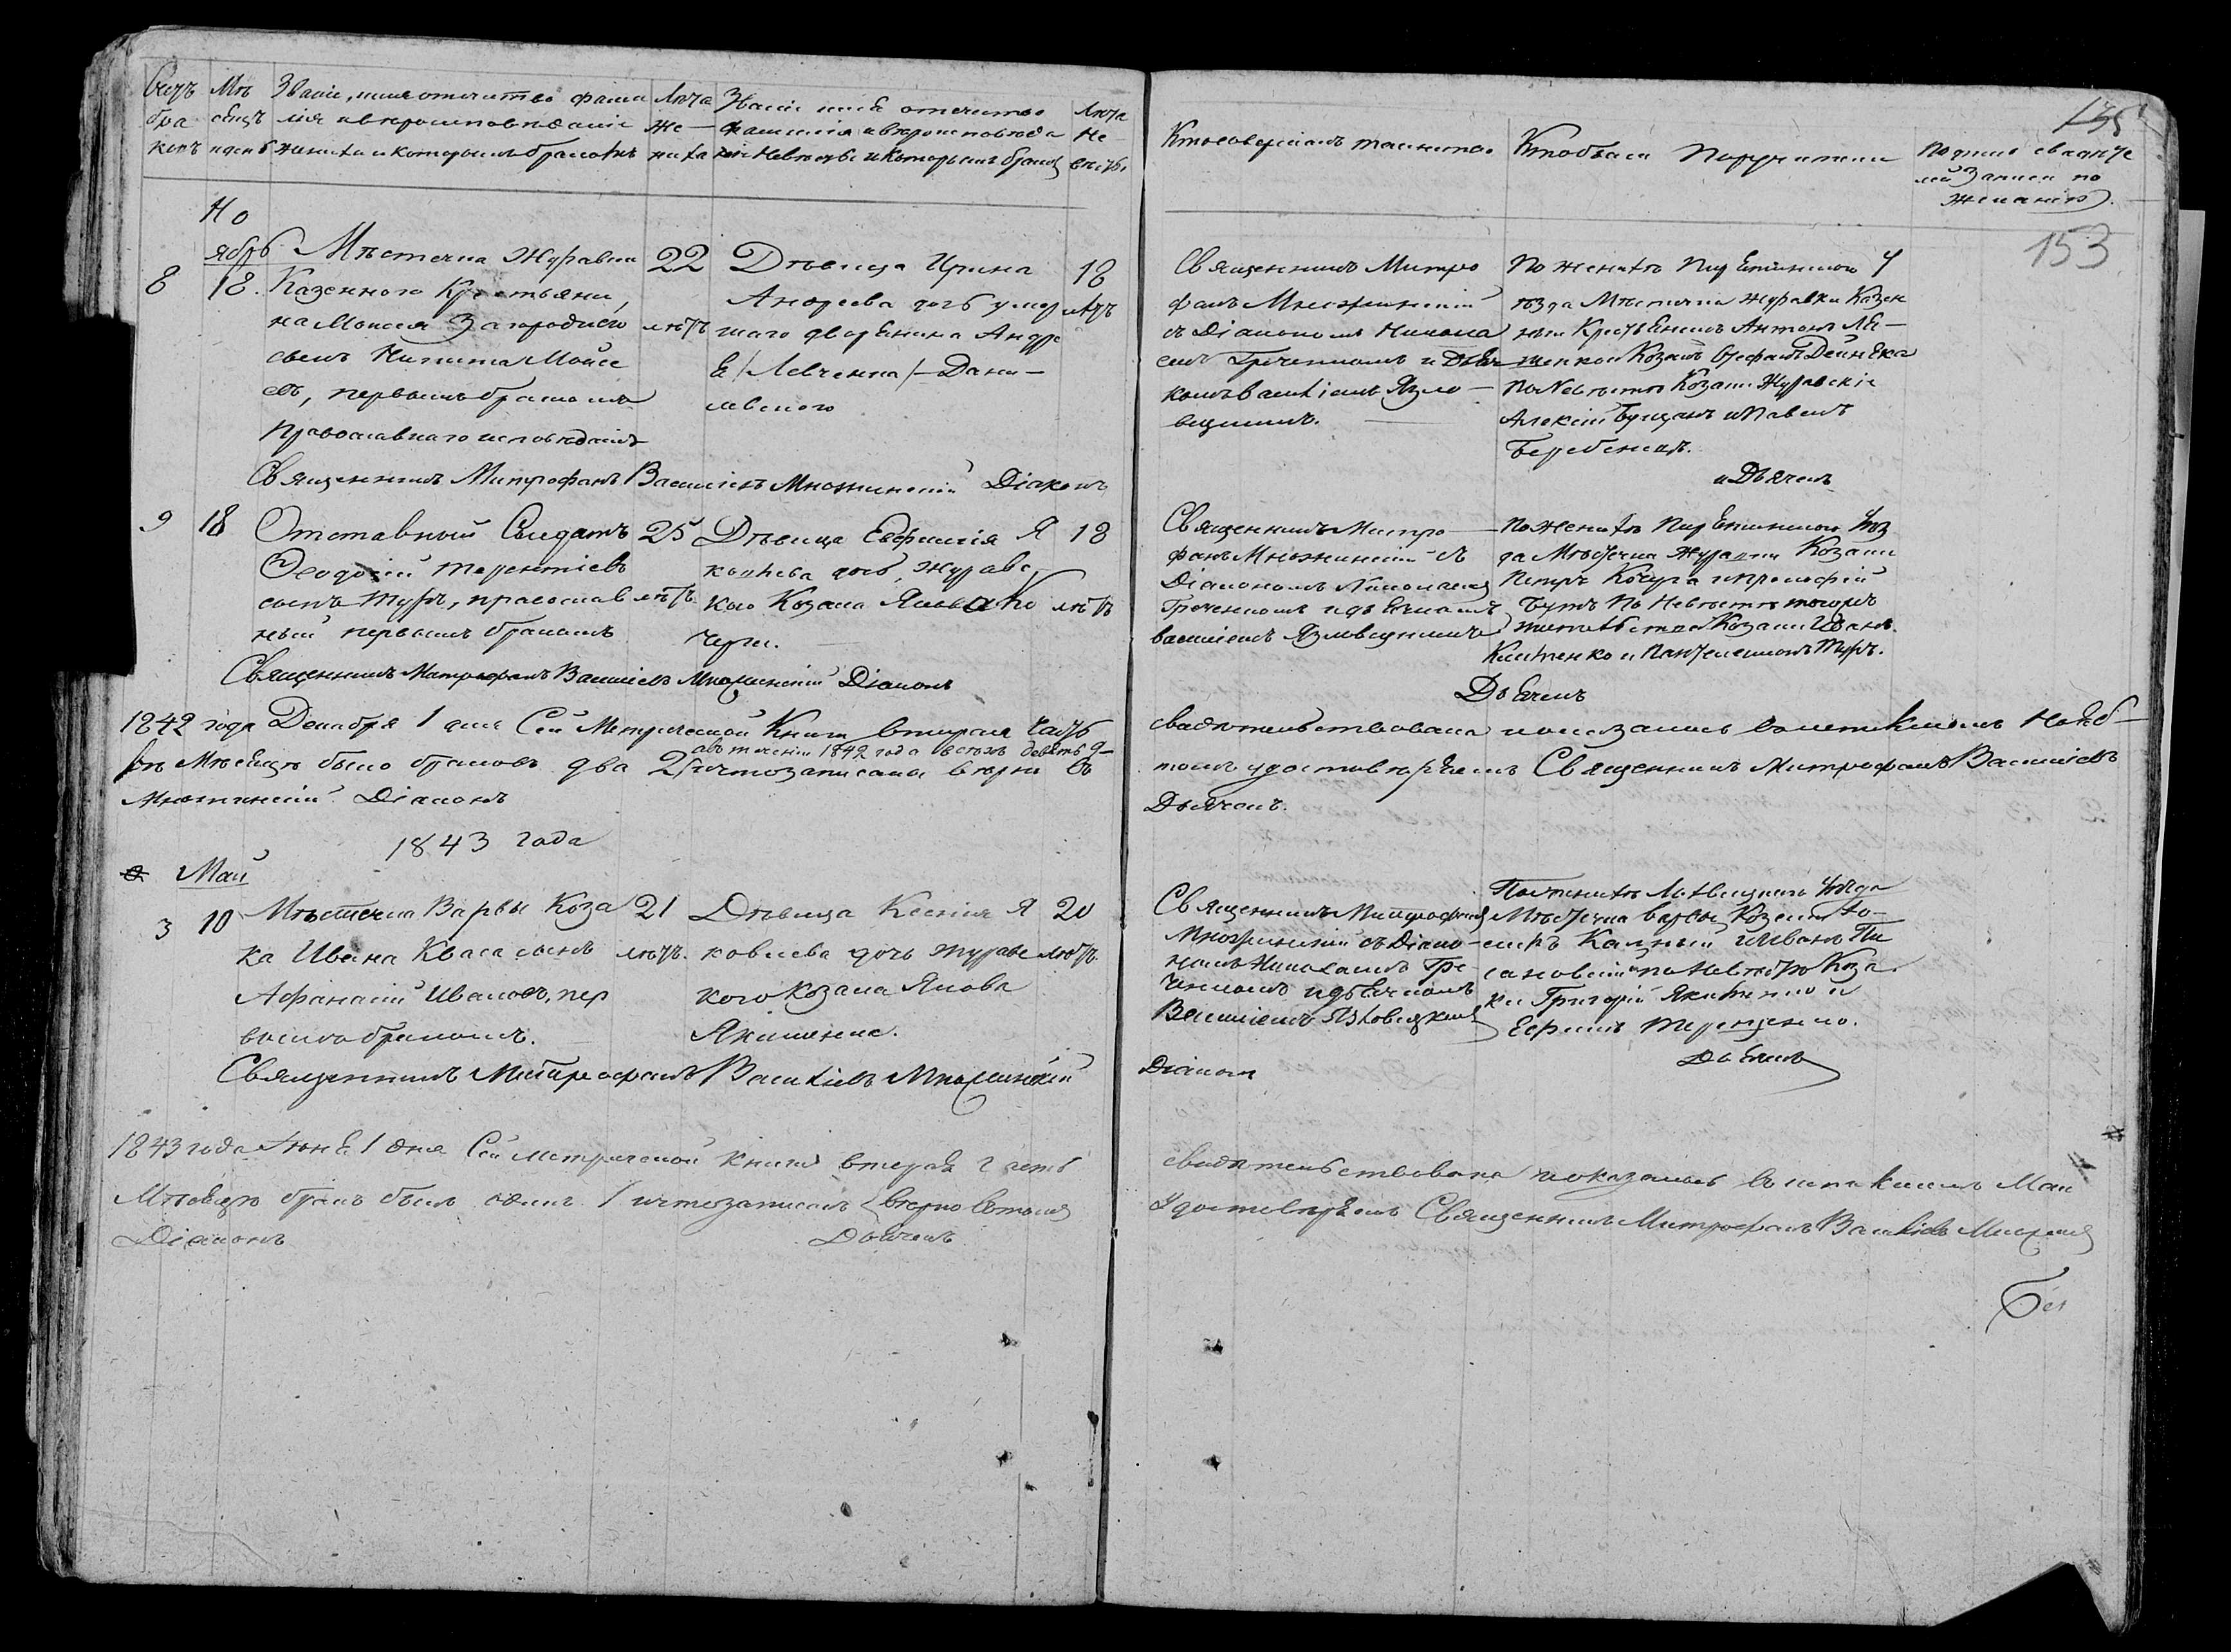 135
153
Счетъ бра ковъ
Мѣ сяцъ и день
Званіе, имя отчество фами
лія и вѣроисповѣданіе
жениха и которымъ бракомъ
Лѣта
же-
ниха
Званіе имя отечество
фамилія и вѣроисповѣда
ніе Невѣсты и которымъ бракомъ
Лѣта
Не
вѣсты
Кто совершалъ таинство
Кто были Поручители
Подпись свидѣте
лей Записи по
желанію.
Но
ябрь
8
18.
Мѣстечка Журавки
Казеннаго Крестьяни,
на Моисея Загороднего
сынъ Никита Мойсе
евъ, первымъ бракомъ
Православнаго исповѣданія
22
лѣтъ
Дѣвица Ирина
Андреева дочь умер
шаго дворянина Андре
я /Левченка/ – Дани –
левского
18
лѣтъ
Священникъ Митро
фанъ Множинскій
съ Діакономъ Никола
емъ Греченкомъ и Дьяч
комъ Василіемъ Язло –
вецкимъ.
По женихѣ Пирятинского У
ѣзда Мѣстечка Журавки Казен
ный Крестьянинъ Антонъ Ля –
шенко и Козакъ Стефанъ Дейнека
по Невѣсте Козаки Журавскіе
Алексій Буцанъ и Павелъ
Беребенецъ.
Священникъ Митрофанъ Василіевъ Множинскій Діаконъ
и Дьячекъ
9
18
Отставный Солдатъ
Феодосій Терентіевъ
сынъ Туръ, православ
ный первымъ бракомъ
25
лѣтъ
Дѣвица Евфимія Я
ковлева дочь, Журавс
кого Козака Якова Ко
черги.
18
лѣтъ
Священникъ Митро –
фанъ Множинскій съ
Діакономъ Николаемъ
Греченкомъ и дьячкомъ
Василіемъ Язловецкимъ
По Женихѣ Пирятинского Уѣз
да Мѣстечка Журавки Козаки
Петръ Кочерга и Прокофій
Бутъ По Невѣсте того жъ
жительства Козаки Иванъ
Клименко и Пантелеимонъ Туръ.
Священникъ Митрофанъ Василіевъ Множинскій Діаконъ
Дьячекъ
1842 года Декабря 1 дня Сей Метрической Книги вторая часть
свидѣтельствована и оказалось во ономъ Нояб –
рѣ Мѣсяцѣ было браковъ два 2, а въ теченіи 1842 года всѣхъ девять 9 – и что записаны вѣрно въ
томъ удостовѣряемъ Священникъ Митрофанъ Василіевъ
Множинскій Діаконъ
Дьячекъ.
1843 года
Май
3
10
Мѣстечка Варвы Коза
ка Ивана Кваса сынъ
Афанасій Ивановъ, пер
вымъ бракомъ.
21
лѣтъ.
Дѣвица Ксенія Я
ковлева дочь Журавс
кого Козака Якова
Якименка.
20
лѣтъ.
Священникъ Митрофанъ
Множинскій съ Діако –
номъ Николаемъ Гре –
ченкомъ и дьячкомъ
Василіемъ Язловецкимъ
По женихѣ Лохвицкого Уѣзда
Мѣстечка Варвы Козаки
Калный и Иванъ Пи
сановскій по Невѣсте Коза
ки Григорій Якименко и
Ефимъ Терещенко.
Священникъ Митрофанъ Василіевъ Множинскій
Діаконъ
Дьячекъ
1843 года Июня 1 дня Сей метрической книги вторая часть
свидѣтельствована и оказалось Маи
Мѣсяцѣ бракъ былъ одинъ 1 и что записанъ вѣрно въ томъ
удостовѣряемъ Священникъ Митрофанъ Василіевъ Множинскій
Діаконъ
Дьячекъ